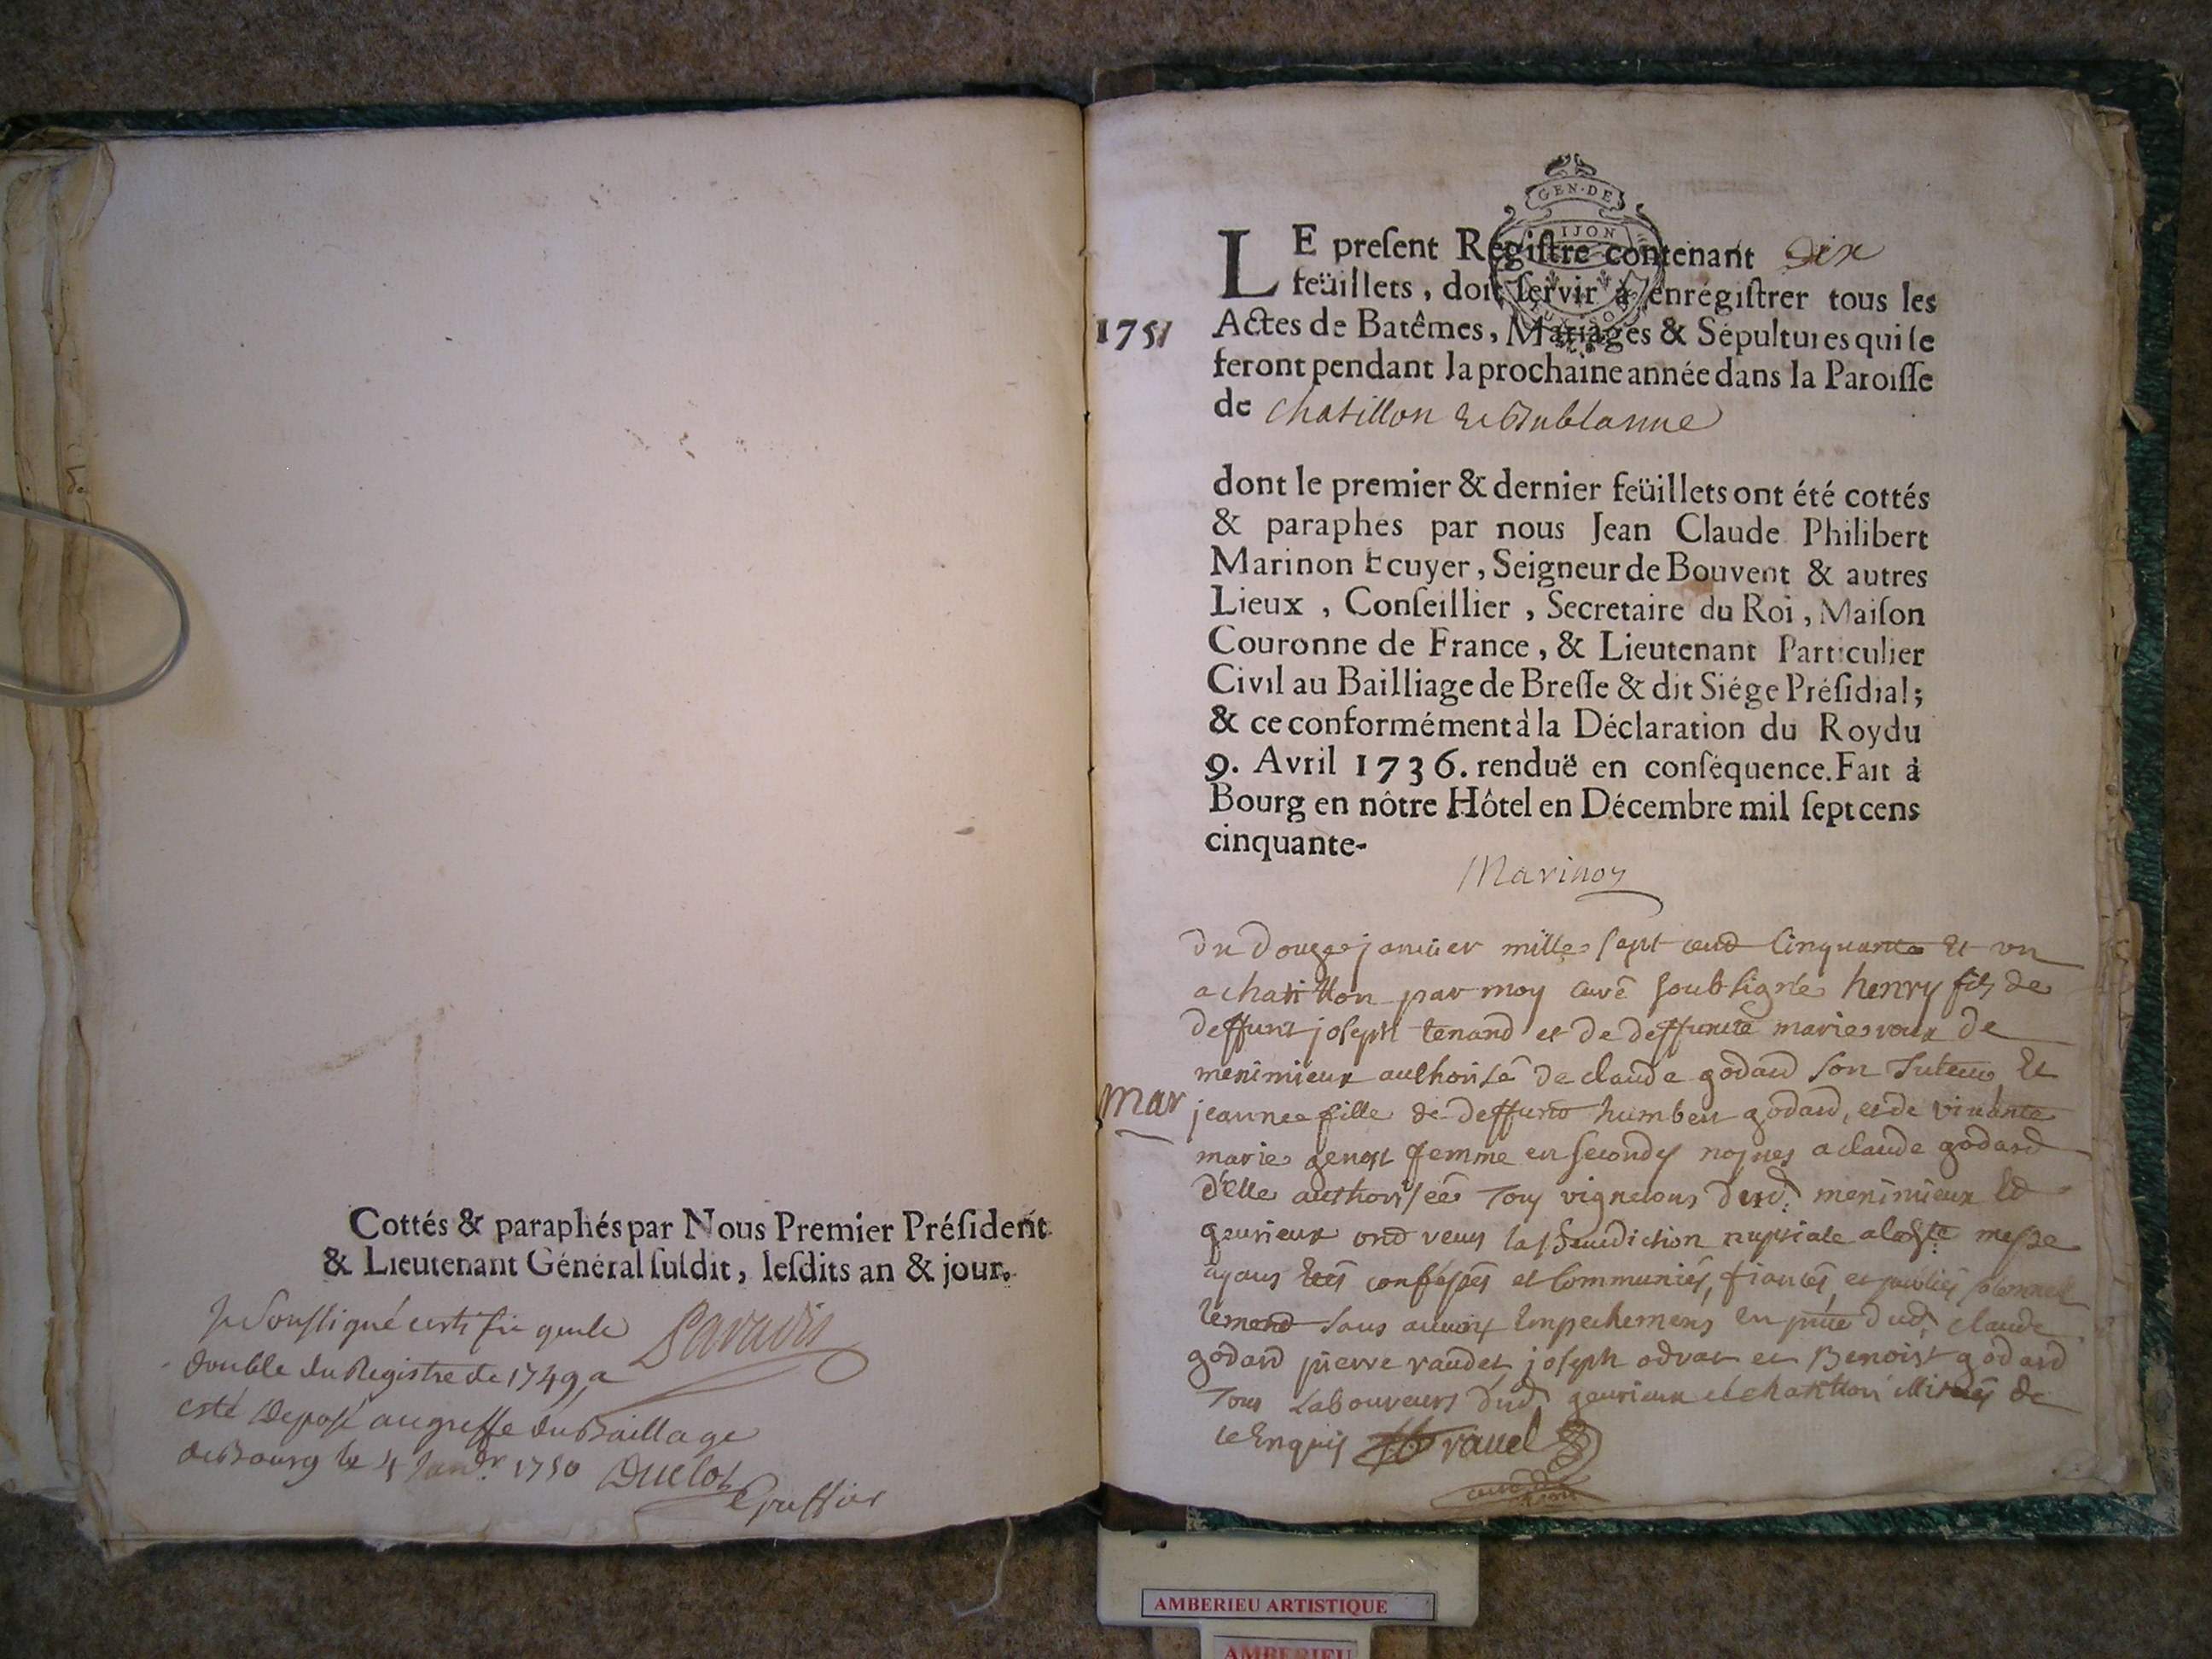 Cottés & paraphés par Nous Premier Préſident
& Lieutenant Général ſuſdit, leſdits an & jour.
Je Soussigné certifie que le
double du Registre de 1749 a
esté Deposé au greffe du Baillage
de Bourg le 4 Janvr 1750 Duclos
Greffier
GEN·DE
IJON
LE preſent Regiſtre contenant Dix
feüillets, doit ſervir à enrégiſtrer tous les
1751
Actes de Batêmes, Mariages & Sépultures qui ſe
feront pendant la prochaine année dans la Paroiſſe
de Chatillon et Bublanne
dont le premier & dernier feüillets ont été cottés
& paraphés par nous Jean Claude Philibert
Marinon Ecuyer, Seigneur de Bouvent & autres
Lieux, Conſeillier, Secretaire du Roi, Maiſon
Couronne de France, & Lieutenant Particulier
Civil au Bailliage de Breſſe & dit Siége Préſidial;
& ce conformément à la Déclaration du Roy du
9. Avril 1736. renduë en conſéquence. Fait à
Bourg en nôtre Hôtel en Décembre mil ſept cens
cinquante-
Marinon
Du Douze janvier mille sept cend Cinquante Et un
a chatillon par moy curé soubsigné henry fils de
deffunt joseph tenand et de deffuncte marie roux de
menimieux authorisé de claude godard son Tuteur Et
Mar
jeanne fille de deffunt humbert godard, et de vivante
marie genost femme en secondes nopces a claude godard
d'elle authorisée Tous vignerons dud: menimieux Et
gevrieux ond reçus la Benediction nuptiale a la Ste messe
ayans Etés confessés et Communiés, fiancés, et publiés solemnel
lemend sans aucuns Empechemens En pnce dud: claude
godard pierre raudet joseph odrat et Benoist godard
Tous Laboureurs dud gevrieux et chatillon illitrés de
ce Enquis ravel
curé de
AMBERIEU ARTISTIQUE
AMBERIEU